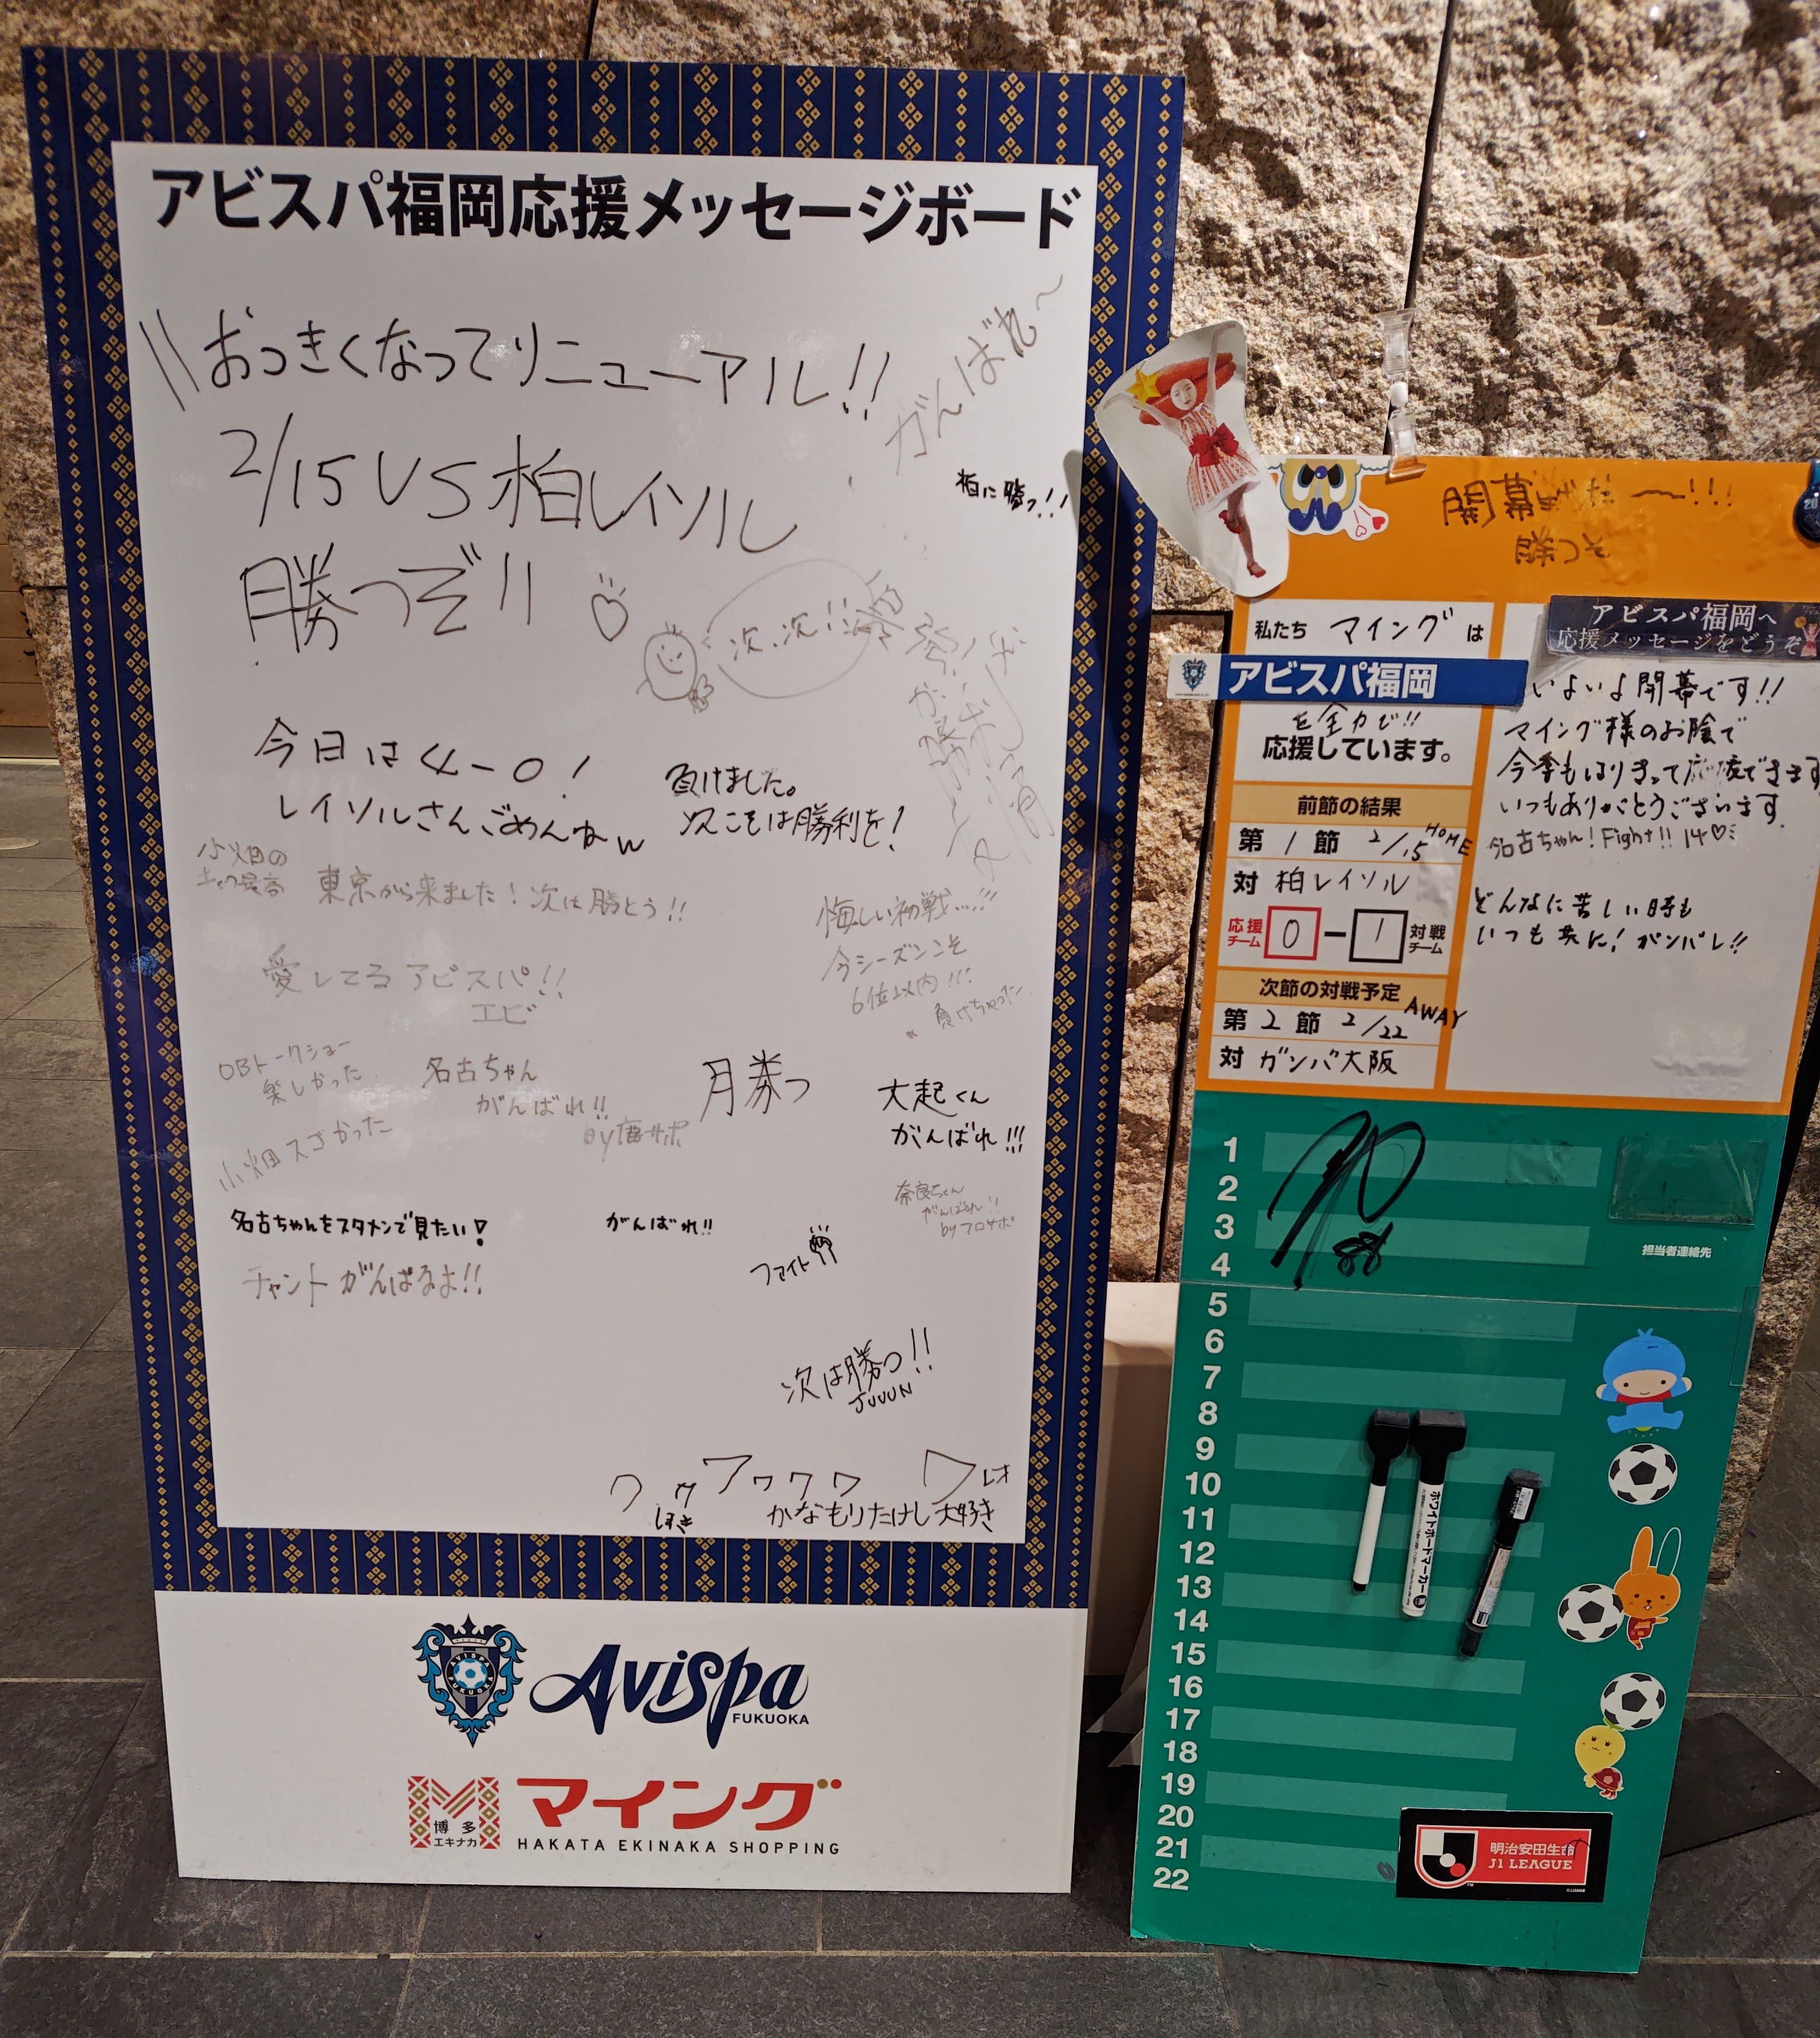 アビスパ福岡応援メッセージボード
おっきくなってリニューアル!!
2/15 VS 柏レイソル
勝つぞ!!
がんばれ〜
柏に勝つ!!
次、次!!
今日は4-0!
レイソルさんごめんねw
負けました。
次こそは勝利を!
小畑の
最高
東京から来ました!次は勝とう!!
悔しい初戦...!!!
今シーズンこそ
6位以内!!!
負けちゃった
愛してるアビスパ!!
エビ
OBトークショー
楽しかった
小畑スゴかった
名古ちゃん
がんばれ!!
by鹿サポ
勝つ
大起くん
がんばれ!!!
奈良ちゃん
がんばれ!!
byフロサポ
名古ちゃんをスタメンで見たい!
がんばれ!!
ファイト
チャントがんばるよ!!
次は勝つ!!
JUUUN
かなもりたけし大好き
AVISPA
FUKUOKA
Avispa
FUKUOKA
博多
エキナカ
マイング
HAKATA EKINAKA SHOPPING
勝つぞ
私たち マイング は
アビスパ福岡
を全力で!!
応援しています。
前節の結果
第 1 節 2/15 HOME
対 柏レイソル
応援
チーム
0 - 1
対戦
チーム
次節の対戦予定
第 2 節 2/22 AWAY
対 ガンバ大阪
アビスパ福岡へ
応援メッセージをどうぞ
いよいよ開幕です!!
マイング様のお陰で
今季もはりきって応援できます
いつもありがとうございます。
名古ちゃん!Fight!! 14♡
どんなに苦しい時も
いつも共に!ガンバレ!!
1
2
3
4
5
6
7
8
9
10
11
12
13
14
15
16
17
18
19
20
21
22
88
担当者連絡先
ホワイトボードマーカー
明治安田生命
J1 LEAGUE